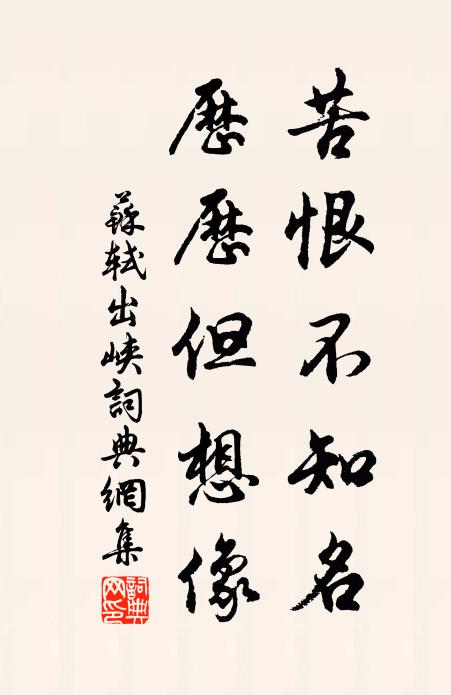 苦恨不知名
歷歷但想像
蘇軾出峽詞典網集
詞典網印